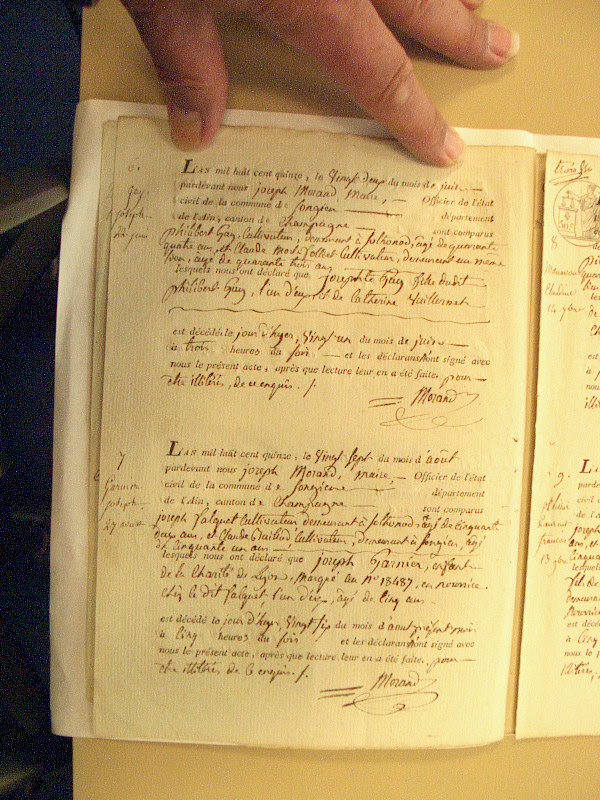 6.
Gay
joseph
22 juin
L'AN mil huit cent quinze, le vingt deux du mois de juin
pardevant nous joseph Morand Maire, Officier de l'état
civil de la commune de Songieu département
de l'Ain, canton de Champagne sont comparus
philibert Gay, Cultivateur, demeurant à Sothonod, agé de quarante
quatre ans, et Claude Cultivateur, demeurant au meme
lieu, agé de quarante trois ans
lesquels nous ont déclaré que josephte Gay fille dudit
philibert Gay, l'un d'eux et de Catherine Vuillermet
est décédé le jour d'hyer, vingt un du mois de juin
à trois heures du soir et les déclarans ont signé avec
nous le présent acte, après que lecture leur en a été faite, pour
etre illitérés, de ce enquis. /.
Morand
7
Garnier
joseph
27 aout
L'AN mil huit cent quinze, le vingt sept du mois d'août
pardevant nous joseph Morand, maire, Officier de l'état
civil de la commune de Songieu département
de l'Ain, canton de Champagne sont comparus
joseph falquet Cultivateur demeurant à Sothonod, agé de cinquante
deux ans, et Claude Cultivateur, demeurant à Songieu, agé
de cinquante un ans
lesquels nous ont déclaré que joseph Garnier, enfant
de la Charité de Lyon, Marqué au n° 18487, en nourrice
chez le dit falquet l'un d'eux, agé de cinq ans
est décédé le jour d'hyer, vingt six du mois d'août présent mois
à cinq heures du soir et les déclarans ont signé avec
nous le présent acte, après que lecture leur en a été faite, pour
etre illitérés de ce enquis. /.
Morand
trois
8
9.